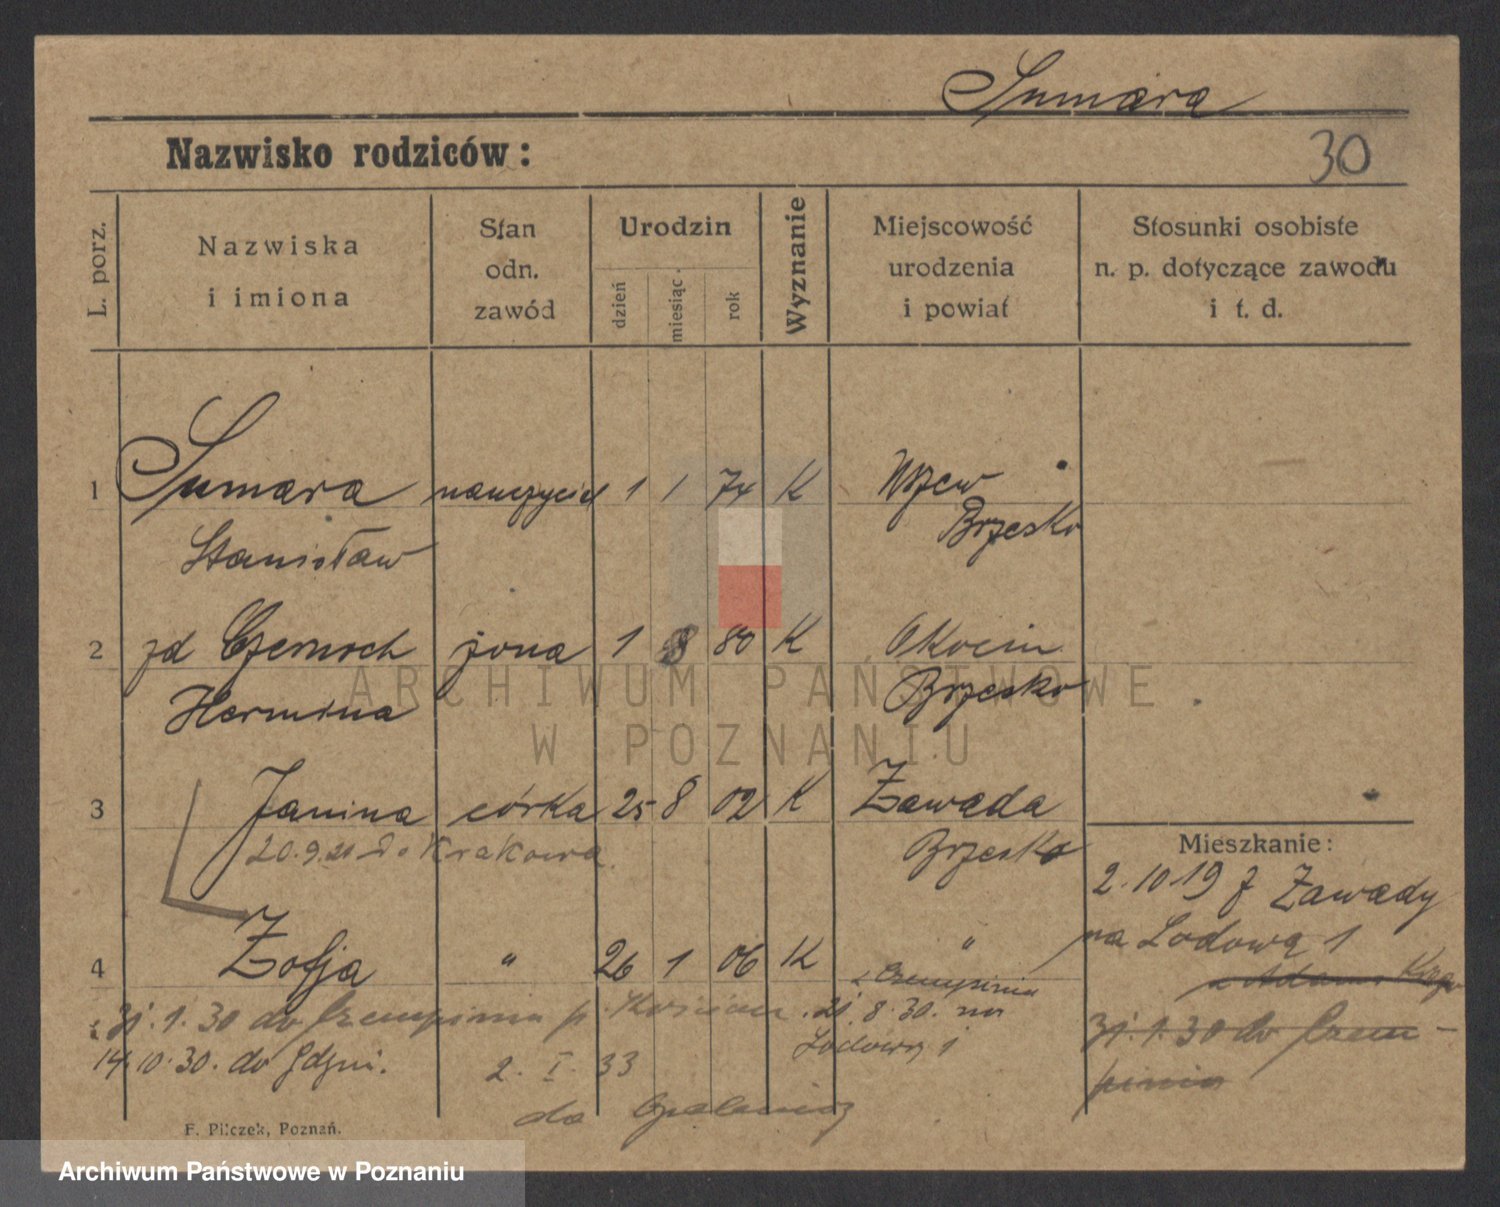 Sumara
Nazwisko rodziców:
30
L. porz.
Nazwiska
i imiona
Stan
odn.
zawód
Urodzin
dzień
miesiąc.
rok
Wyznanie
Miejscowość
urodzenia
i powiat
Stosunki osobiste
n. p. dotyczące zawodu
i t. d.
1 Sumara nauczyciel 1 1 74 K
Brzesko
Stanisław
2 zd Czernoch żona 1 8 80 K Okocim
Hermina Brzesko
3 Janina córka 25 8 02 K Zawada
20.9.21 do Krakowa. Brzesko
Mieszkanie:
2.10.19 z Zawady
na Lodową 1
4 Zofja " 26 1 06 K "
z Czempinia
z Adama
31.1.30 do Czempinia p. Kościan. 21.8.30. na
Lodową 1
31.1.30 do Czem-
pinia
14.10.30. do Gdyni.
2. I. 33
do Opalenicy
F. Pilczek, Poznań.
ARCHIWUM PAŃSTWOWE
W POZNANIU
Archiwum Państwowe w Poznaniu